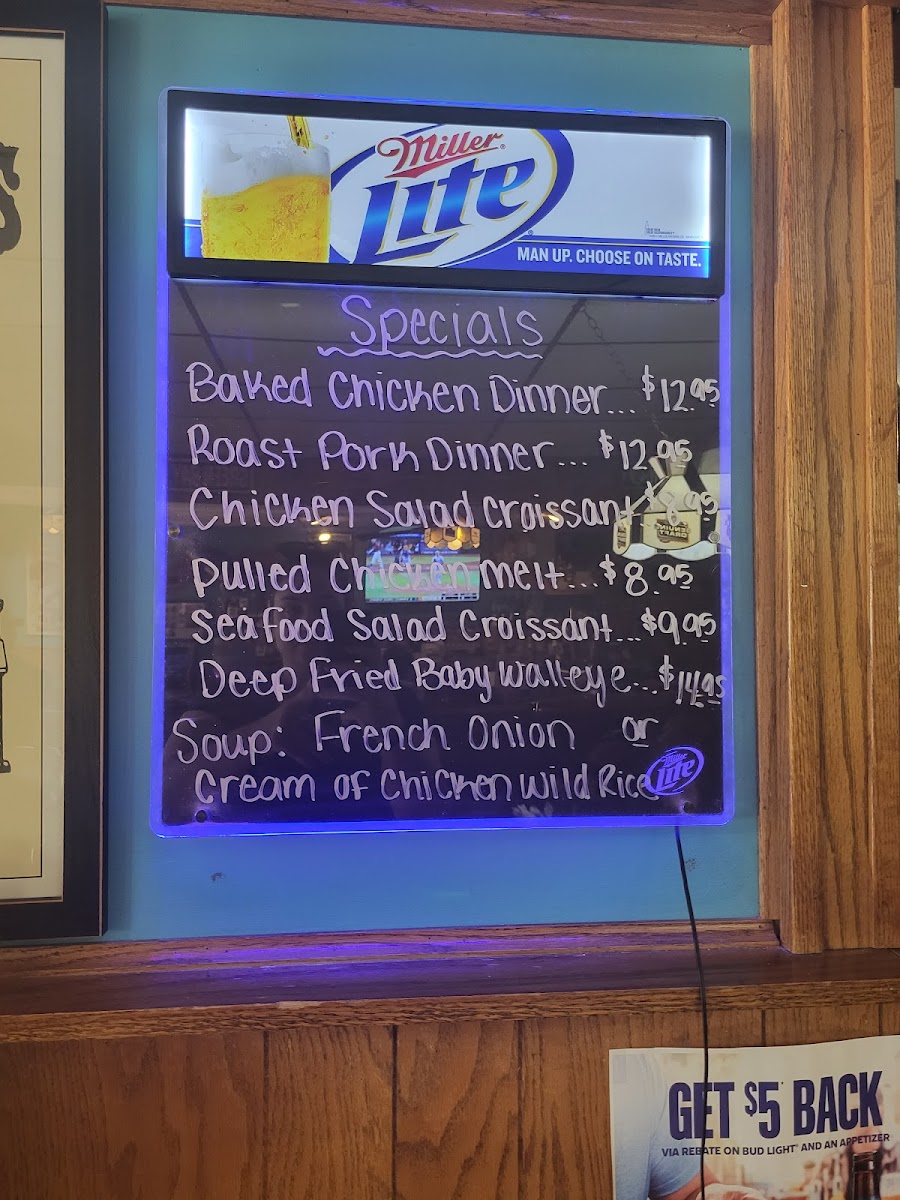 Miller
Lite
MAN UP. CHOOSE ON TASTE.
Specials
Baked Chicken Dinner... $12.95
Roast Pork Dinner... $12.95
Chicken Salad Croissant $8.95
Pulled Chicken melt... $8.95
Seafood Salad Croissant... $9.95
Deep Fried Baby Walleye... $14.95
Soup: French Onion or
Cream of Chicken Wild Rice
Miller
Lite
GET $5 BACK
VIA REBATE ON BUD LIGHT® AND AN APPETIZER